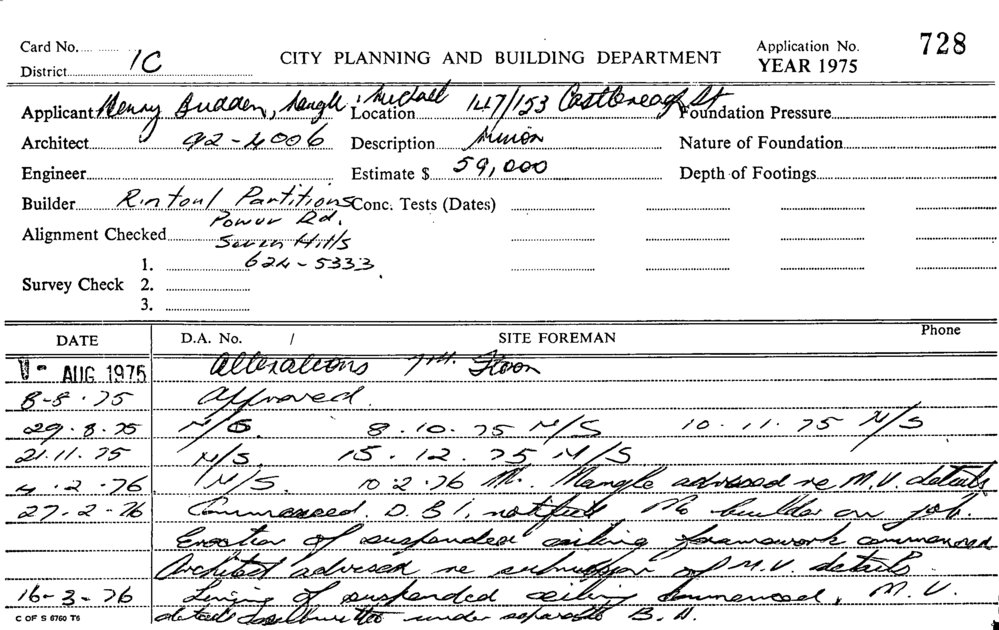 Card No. CITY PLANNING AND BUILDING DEPARTMENT Application No. 728
District 1C YEAR 1975
Applicant Henry Budden, Nangle & Michael Location 147/153 Castlereagh St Foundation Pressure
Architect 92-4006 Description Minor Nature of Foundation
Engineer Estimate $ 59,000 Depth of Footings
Builder Rintoul Partitions Conc. Tests (Dates)
Power Rd.
Alignment Checked Seven Hills
1. 624-5333
Survey Check 2.
3.
DATE D.A. No. / SITE FOREMAN Phone
AUG 1975 Alterations 7th. Floor
8-8-75 Approved.
29.8.75 N/S. 8.10.75 N/S 10.11.75 N/S
21.11.75 N/S 15.12.75 N/S
4.2.76 N/S. 10.2.76 Mr. Nangle advised re M.V. details
27-2-76 Commenced. D.B.I. notified No builder on job.
Erection of suspended ceiling framework commenced
Architect advised re submission of M.V. details.
16-3-76 Lining of suspended ceiling commenced, M.V.
details submitted under separate B.A.
C OF S 6760 T6